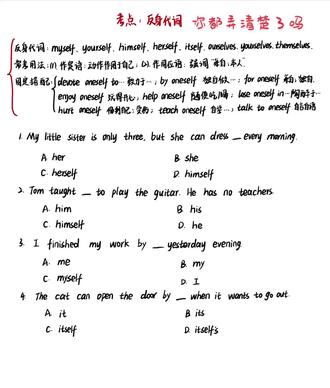 考点：反身代词 你都弄清楚了吗
反身代词：myself. yourself. himself. herself. itself. ourselves. yourselves. themselves.
常考用法：(1) 作宾语：动作作用于自己；(2) 作同位语：强调"亲自、本人"
固定搭配： devote oneself to… 致力于…；by oneself 独自做…；for oneself 亲自、
enjoy oneself 玩得开心；help oneself 随便吃/喝；lose oneself in…陶醉于…
hurt oneself 伤到自己；teach oneself 自学…；talk to oneself 自言自语
1. My little sister is only three, but she can dress __ every morning.
A. her B. she
C. herself D. himself
2. Tom taught __ to play the guitar. He has no teachers.
A. him B. his
C. himself D. he
3. I finished my work by __ yesterday evening.
A. me B. my
C. myself D. I
4. The cat can open the door by __ when it wants to go out.
A. it B. its
C. itself D. itself's